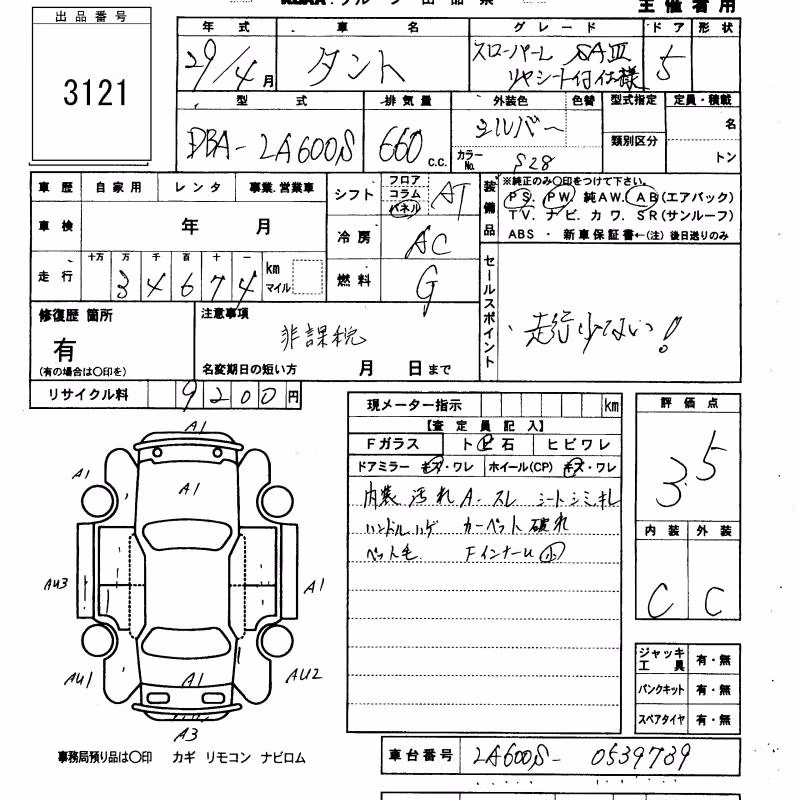 主催者用
出品番号
3121
年式 車名 グレード ドア 形状
29/4月 タント スローパーL SAⅢ
リヤシート付仕様 5
型式 排気量 外装色 色替 型式指定 定員・積載
DBA-LA600S 660 c.c. シルバー 名
カラーNo. S28 類別区分 トン
車歴 自家用 レンタ 事業.営業車
シフト フロア コラム パネル AT
車検 年 月
冷房 AC
走行 十万 万 千 百 十 一 km マイル
34674
燃料 G
装備品 ※純正のみ○印をつけて下さい。
PS. PW. 純AW. AB(エアバック)
TV. ナビ. カワ. SR(サンルーフ)
ABS ・ 新車保証書←(注) 後日送りのみ
セールスポイント
走行少ない!
修復歴 箇所
有
(有の場合は○印を)
注意事項
非課税
名変期日の短い方 月 日まで
リサイクル料 9200円
現メーター指示 km
【査定員記入】
Fガラス ト ビ 石 ヒビワレ
ドアミラー キズ・ワレ ホイール(CP) キズ・ワレ
内装 汚れ A. スレ シートシミ キレ
ハンドルハゲ カーペット破れ
ペット毛 FインナーU 小
評価点
3.5
内装 外装
C C
A1
A1
A1
AU3
A1
AU1
A1
AU2
A3
ジャッキ工具 有・無
パンクキット 有・無
スペアタイヤ 有・無
事務局預り品は○印 カギ リモコン ナビロム
車台番号 LA600S- 0539789